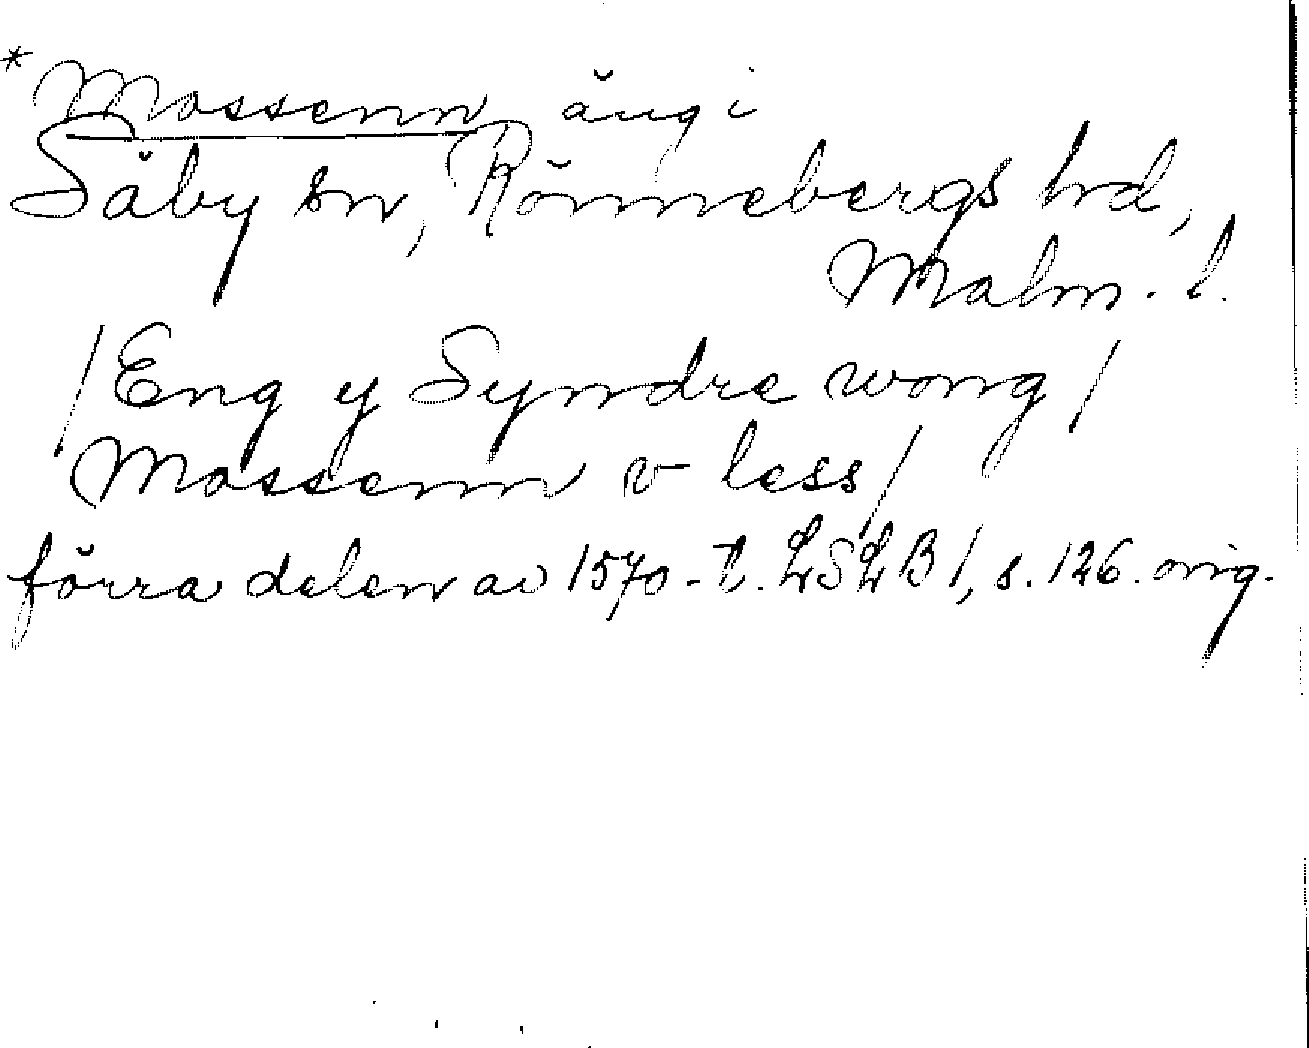 *Mossenn, äng i
Säby sn, Rönnebergs hd,
Malm. l.
/Eng y Syndre wong/
Mossenn v less/
förra delen av 1570-t. LSLB 1, s. 126. orig.